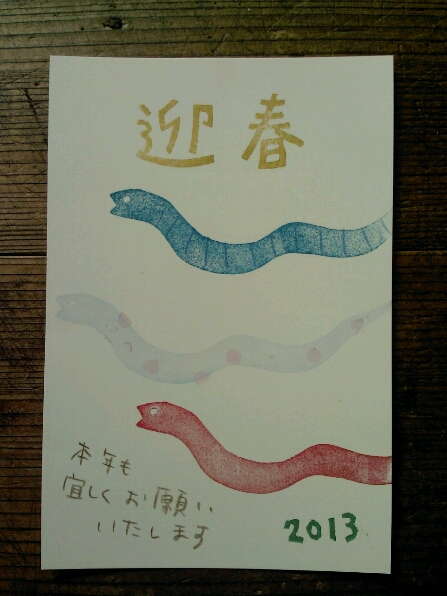 迎春
本年も
宜しくお願い
いたします
2013